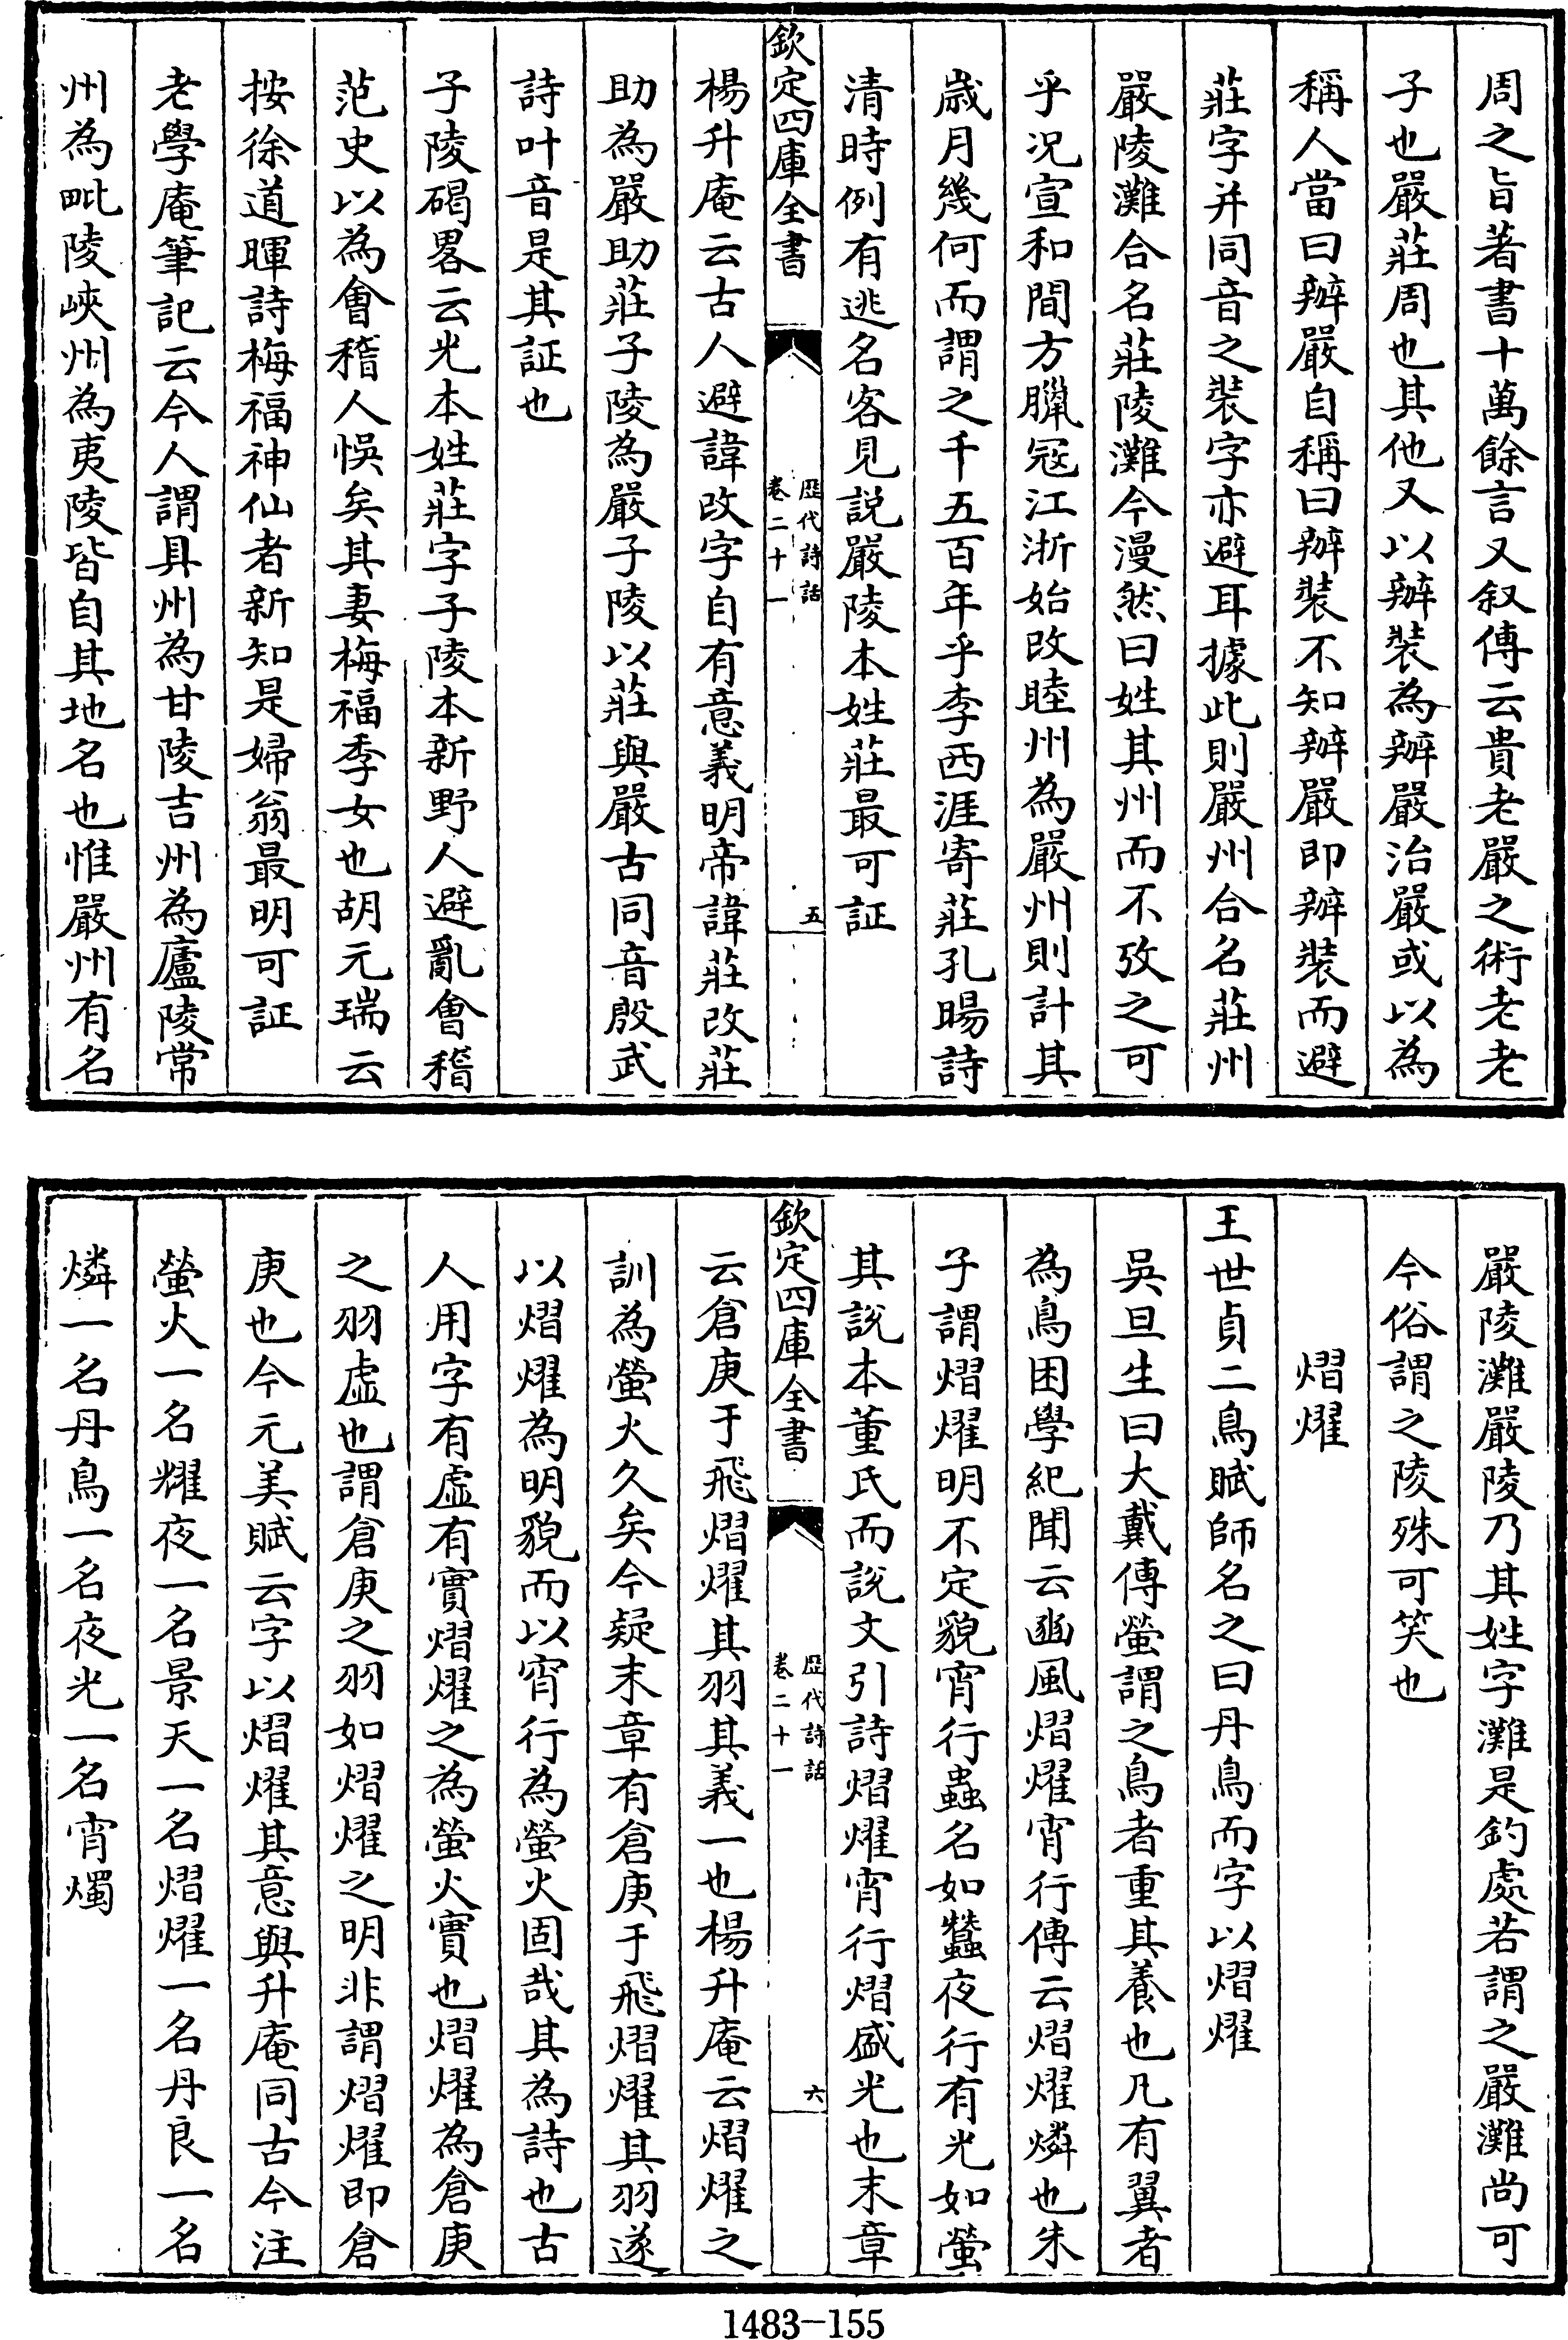 周之旨著書十萬餘言又叙傳云貴老嚴之術老老
子也嚴莊周也其他又以辦裝為辦嚴治嚴或以為
稱人當曰辦嚴自稱曰辦裝不知辦嚴即辦裝而避
莊字并同音之裝字亦避耳據此則嚴州合名莊州
嚴陵灘合名莊陵灘今漫然曰姓其州而不攷之可
乎况宣和間方臘冦江浙始改睦州為嚴州則計其
歳月幾何而謂之千五百年乎李西涯寄莊孔暘詩
清時例有逃名客見説嚴陵本姓莊最可証
欽定四庫全書
歴代詩話
卷二十一
五
楊升庵云古人避諱改字自有意義明帝諱莊改莊
助為嚴助莊子陵為嚴子陵以莊與嚴古同音殷武
詩叶音是其証也
子陵碣畧云光本姓莊字子陵本新野人避亂會稽
范史以為會稽人悞矣其妻梅福季女也胡元瑞云
按徐道暉詩梅福神仙者新知是婦翁最明可証
老學庵筆記云今人謂具州為甘陵吉州為廬陵常
州為毗陵峽州為夷陵皆自其地名也惟嚴州有名
嚴陵灘嚴陵乃其姓字灘是釣處若謂之嚴灘尚可
今俗謂之陵殊可笑也
熠燿
王世貞二鳥賦師名之曰丹鳥而字以熠燿
吳旦生曰大戴傳螢謂之鳥者重其養也凡有翼者
為鳥困學紀聞云豳風熠燿宵行傳云熠燿燐也朱
子謂熠燿明不定貌宵行蟲名如蠶夜行有光如螢
其說本董氏而說文引詩熠燿宵行熠盛光也末章
欽定四庫全書
歴代詩話
卷二十一
六
云倉庚于飛熠燿其羽其義一也楊升庵云熠燿之
訓為螢火久矣今疑末章有倉庚于飛熠燿其羽遂
以熠燿為明貌而以宵行為螢火固哉其為詩也古
人用字有虛有實熠燿之為螢火實也熠燿為倉庚
之羽虛也謂倉庚之羽如熠燿之明非謂熠燿即倉
庚也今元美賦云字以熠燿其意與升庵同古今注
螢火一名耀夜一名景天一名熠燿一名丹良一名
燐一名丹鳥一名夜光一名宵燭
1483-155